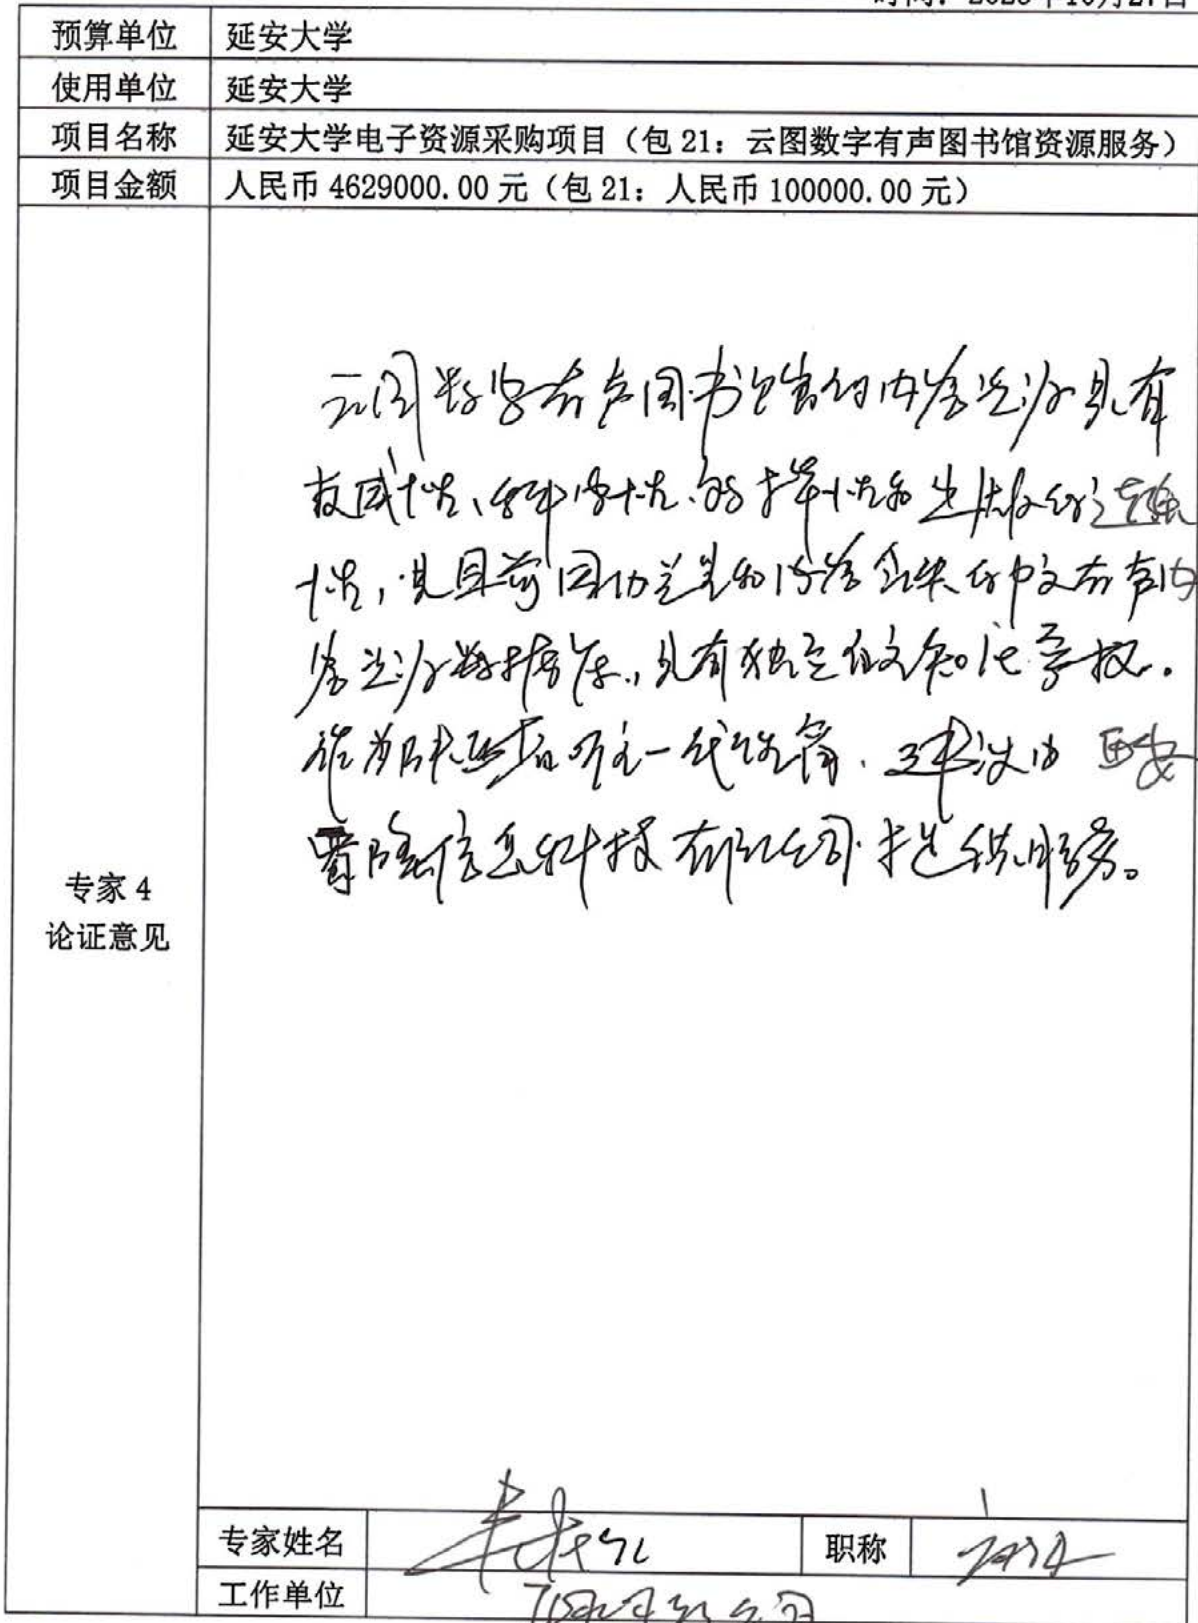 时间：2023年10月27日
预算单位 延安大学
使用单位 延安大学
项目名称 延安大学电子资源采购项目（包 21：云图数字有声图书馆资源服务）
项目金额 人民币 4629000.00 元（包 21：人民币 100000.00 元）
专家 4
论证意见
云图数字有声图书馆的内容资源具有
权威性、科学性、可选择性和出版的连续
性，是目前国内并且内容的中文有声内
容资源数据库，具有独立自主知识产权。
作为陕西省唯一代理商，建议由 西安
信息科技有限公司提供服务。
专家姓名 职称
工作单位